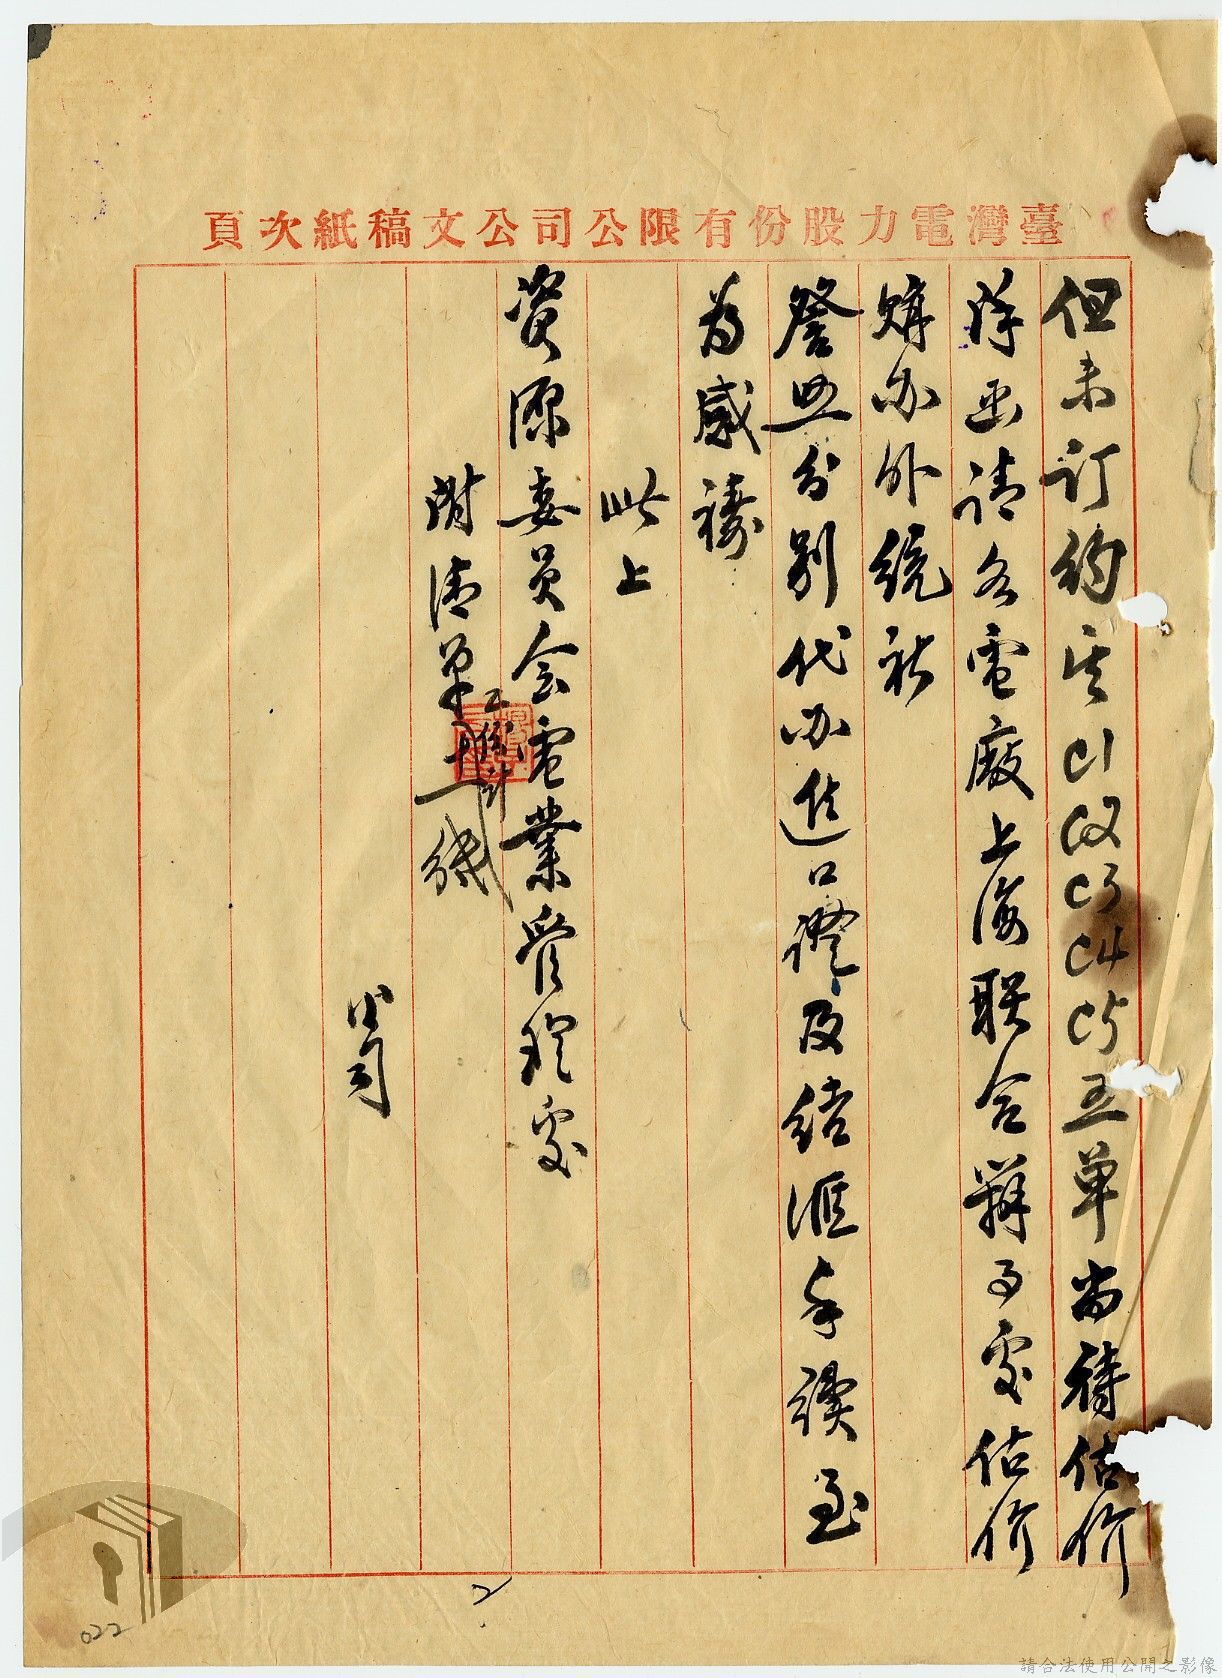 臺灣電力股份有限公司公文稿紙次頁
但未訂約其C1 C2 C3 C4 C5五单尚待估价
除函請各電廠上海联合辦事處估价
購办外統祈
詧照分别代办進口證及结滙手續至
为感禱
此上
资源委员会電業管理處
附清单
公司
2
022
請合法使用公開之影像